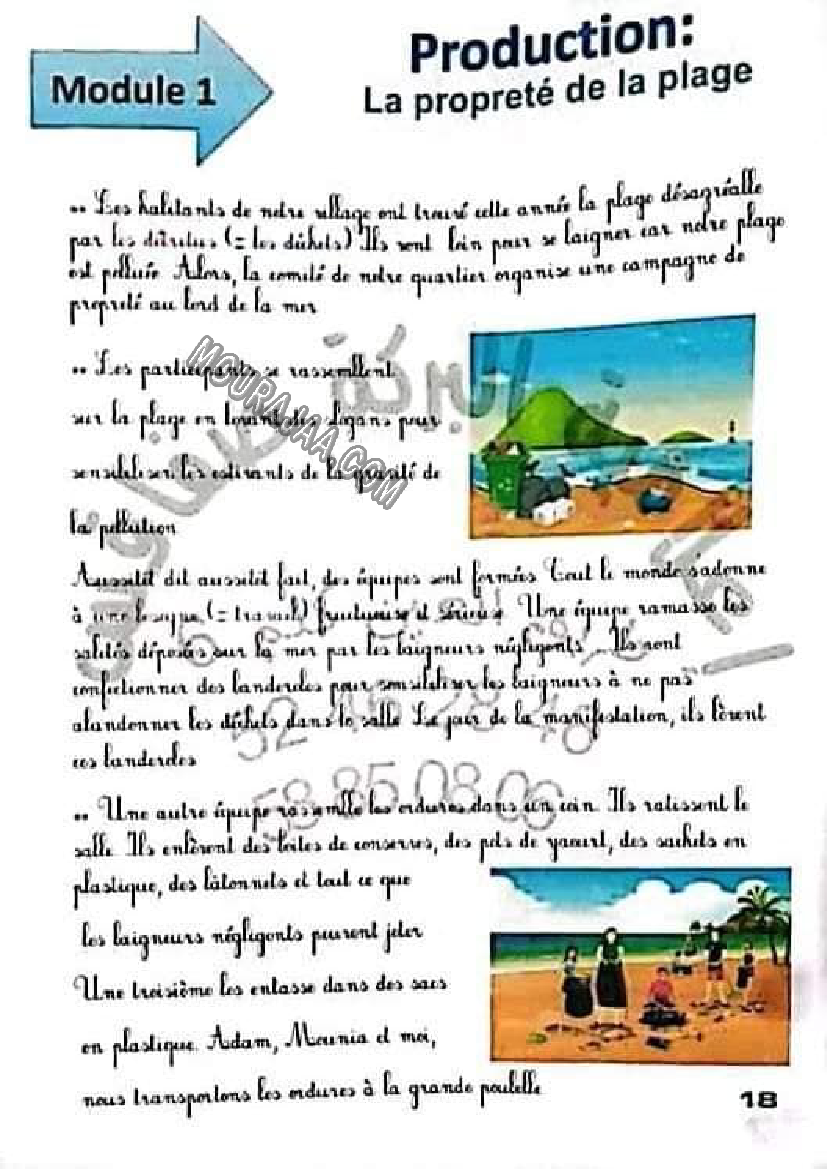 Module 1
Production:
La propreté de la plage
•• Les habitants de notre village ont trouvé cette année la plage désagréable
par les détritus (= les déchets) Ils vont loin pour se baigner car notre plage
est polluée. Alors, la comité de notre quartier organise une campagne de
propreté au bord de la mer
•• Les participants se rassemblent
sur la plage en levant des slogans pour
sensibiliser les estivants de la gravité de
la pollution
Aussitôt dit aussitôt fait, des équipes sont formées Tout le monde s'adonne
à une besogne (= travail) fructueuse et sérieuse Une équipe ramasse les
saletés déposées sur la mer par les baigneurs négligents Ils vont
confectionner des banderoles pour sensibiliser les baigneurs à ne pas
abandonner les déchets dans le sable Le jour de la manifestation, ils lèvent
ces banderoles
•• Une autre équipe rassemble les ordures dans un coin. Ils ratissent le
sable. Ils enlèvent des boites de conserves, des pots de yaourt, des sachets en
plastique, des bâtonnets et tout ce que
les baigneurs négligents peuvent jeter
Une troisième les entasse dans des sacs
en plastique. Adam, Mounia et moi,
nous transportons les ordures à la grande poubelle
18
MOURAJAA.COM
52 46 28 48
58 85 08 06